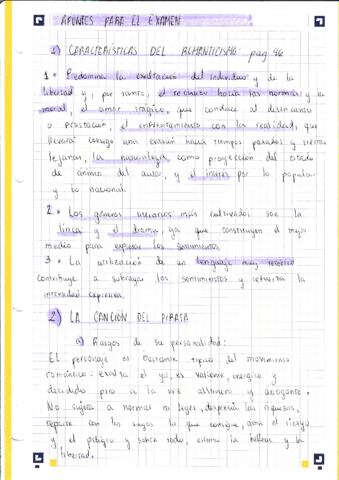 APUNTES PARA EL EXAMEN
1) CARACTERÍSTICAS DEL ROMANTICISMO: pag 96
1 • Predomina la exaltación del individuo y de la
libertad y, por tanto, el rechazo hacia las normas y la
moral, el amor trágico, que conduce al desencanto
o frustración, el enfrentamiento con la realidad, que
llevará consigo una evasión hacia tiempos pasados y tierras
lejanas, la naturaleza como proyección del estado
de ánimo del autor, y el interés por lo popular
y lo nacional.
2 • Los géneros literarios más cultivados son la
lírica y el drama, ya que constituyen el mejor
medio para expresar los sentimientos.
3 • La utilización de un lenguaje muy retórico
contribuye a subrayar los sentimientos y refuerza la
intensidad expresiva.
2) LA CANCIÓN DEL PIRATA
a) Rasgos de su personalidad:
El personaje es bastante típico del movimiento
romántico: exalta el yo, es valiente, enérgico y
decidido pero a la vez altanero y arrogante.
No sujeto a normas ni leyes, desprecia las riquezas,
reparte con los suyos lo que consigue, ama el riesgo
y el peligro y sobre todo, estima la belleza y la
libertad.